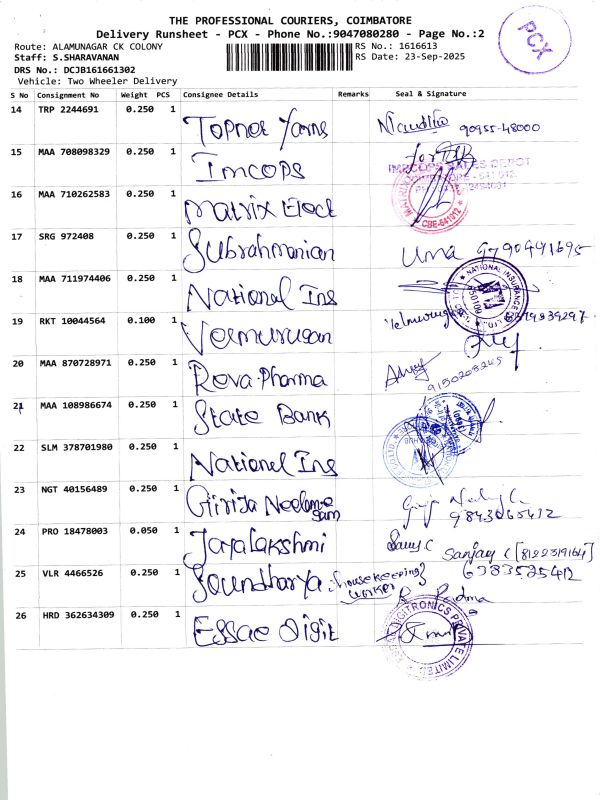 THE PROFESSIONAL COURIERS, COIMBATORE
Delivery Runsheet - PCX - Phone No.:9047080280 - Page No.:2
PCX
Route: ALAMUNAGAR CK COLONY
RS No.: 1616613
Staff: S.SHARAVANAN
RS Date: 23-Sep-2025
DRS No.: DCJB161661302
Vehicle: Two Wheeler Delivery
S No Consignment No Weight PCS Consignee Details Remarks Seal & Signature
14 TRP 2244691 0.250 1 Topnot Yarns 90955-48000
15 MAA 708098329 0.250 1 Imcops
16 MAA 710262583 0.250 1 Matrix Elect CBE-641012
17 SRG 972408 0.250 1 Subrahmanian Uma 9790491695
18 MAA 711974406 0.250 1 National Ins NATIONAL INSURANCE
19 RKT 10044564 0.100 1 Velmurugan Velmurugan
20 MAA 870728971 0.250 1 Reva Pharma 9150208245
21 MAA 108986674 0.250 1 State Bank
22 SLM 378701980 0.250 1 National Ins
23 NGT 40156489 0.250 1 Girija Neelamegam 9843065412
24 PRO 18478003 0.050 1 Jayalakshmi Sanjay C
25 VLR 4466526 0.250 1 Soundharya (housekeeping worker) 6383525412
R Padma
26 HRD 362634309 0.250 1 Essae Digit DIGITRONICS PRIVATE LIMITED